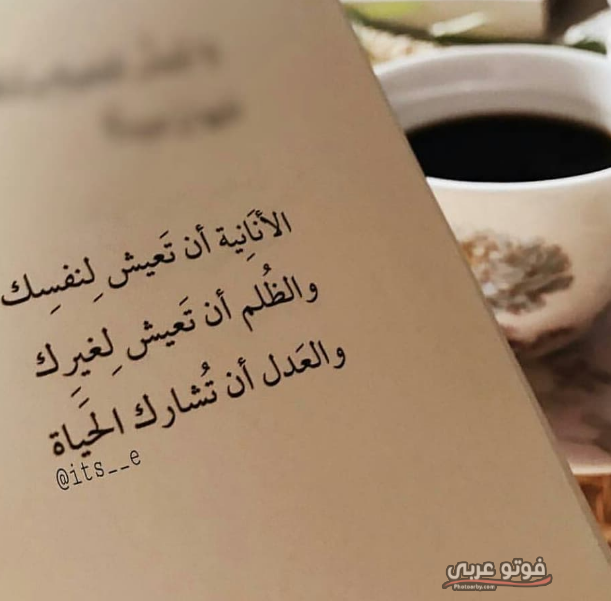 الأنَانِية أن تَعيش لِنفسِك
والظُلم أن تَعيش لِغيرِك
والعَدل أن تُشارك الحَياة
@its__e
فوتو عربي
Photoarby.com